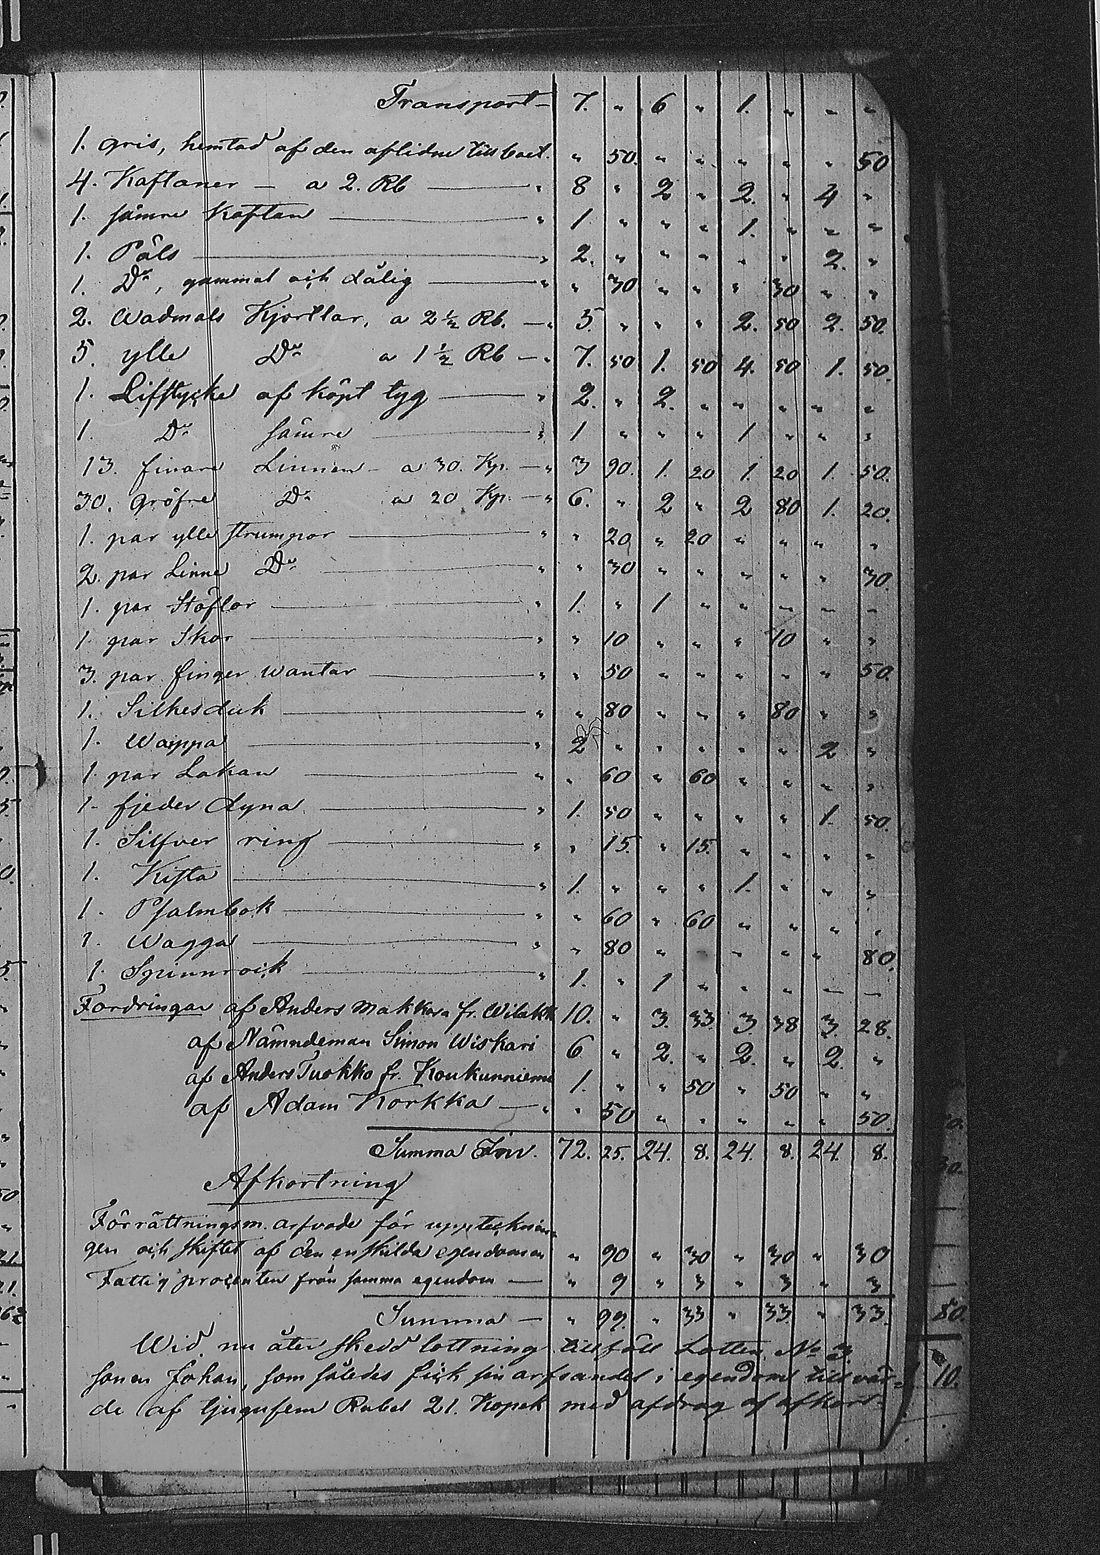 Transport – 7. " 6 " 1. " " "
1. gris, hemtad af den aflidne till boet. " 50. " " " " " 50
4. Kaftaner – a 2. Rb — " 8 " 2 " 2. " 4 "
1. sämre Kaftan — " 1. " " " 1. " " "
1. Päls — " 2. " " " " " 2. "
1. Do, gammal och dålig — " " 30 " " " 30 " "
2. Wadmals Kjortlar, a 2½ Rb. — " 5. " " " 2. 50 2. 50.
5. ylle Do a 1½ Rb — " 7. 50 1. 50 4. 50 1. 50.
1. Lifstycke af köpt tyg — " 2. " 2. " " " " "
1. Do sämre — " 1 " " " 1 " " "
13. finare Linnen – a 30. Kp. — " 3 90. 1. 20 1. 20 1. 50.
30. gröfre Do a 20 Kp. — " 6. " 2 " 2 80 1. 20.
1. par ylle strumpor — " " 20 " 20 " " " "
2. par Linne Do — " " 30 " " " " " 30.
1. par Stöflor — " 1. " 1 " " " " "
1. par Skor — " " 10 " " " 10 " "
3. par finger wantar — " " 50 " " " " " 50
1. Silkesduk — " " 80 " " " 80 " "
1. Wappa — " 2 " " " " " 2 "
1. par Lakan — " " 60 " 60 " " " "
1. fjeder dyna — " 1. 50 " " " " 1. 50.
1. Silfver ring — " " 15. " 15. " " " "
1. Kista — " 1. " " " 1. " " "
1. Psalmbok — " " 60 " 60 " " " "
1. Wagga — " " 80 " " " " " 80.
1. Spinnrock — " 1. " 1 " " " — —
Fordringar af Anders Makkara fr. Wilakk 10. " 3. 33. 3 38 3. 28.
af Nämndeman Simon Wiskari 6 " 2. " 2. " 2. "
af Anders Tuokko fr. Koukunniemi 1. " " 50 " 50 " "
af Adam Korkka — " " 50 " " " " " 50.
Summa 72. 25. 24. 8. 24. 8. 24. 8.
Afkortning
Förrättningsm. arfvode för upptecknin-
gen och skiftet af den enskilda egendomen " 90 " 30 " 30 " 30
Fattig procenten från samma egendom — " 9 " 3 " 3 " 3
Summa — " 99. " 33 " 33. " 33.
Wid nu åter skedd lottning tillföll Lotten No 3
sonen Johan, som således fick sin arfsandel i egendom till vär-
de af tjugufem Rubel 21. Kopek med afdrag af afkort-